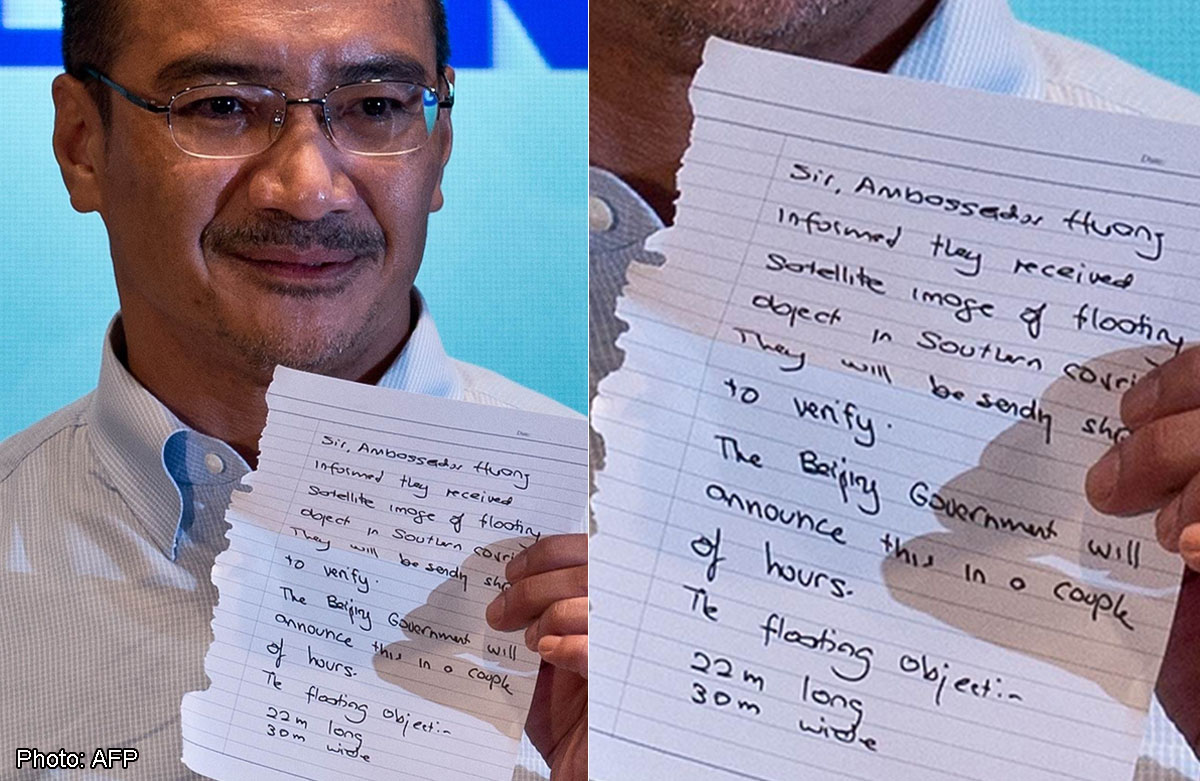 Date:
Sir, Ambassador Huang
Informed they received
Satellite image of floating
object in Southern corri
They will be sending sh
to verify.
The Beijing Government will
announce this in a couple
of hours.
The floating object:-
22m long
30m wide
Photo: AFP
Date:
Sir, Ambassador Huang
Informed they received
Satellite image of floating
object in Southern corri
They will be sending sh
to verify.
The Beijing Government will
announce this in a couple
of hours.
The floating object:-
22m long
30m wide